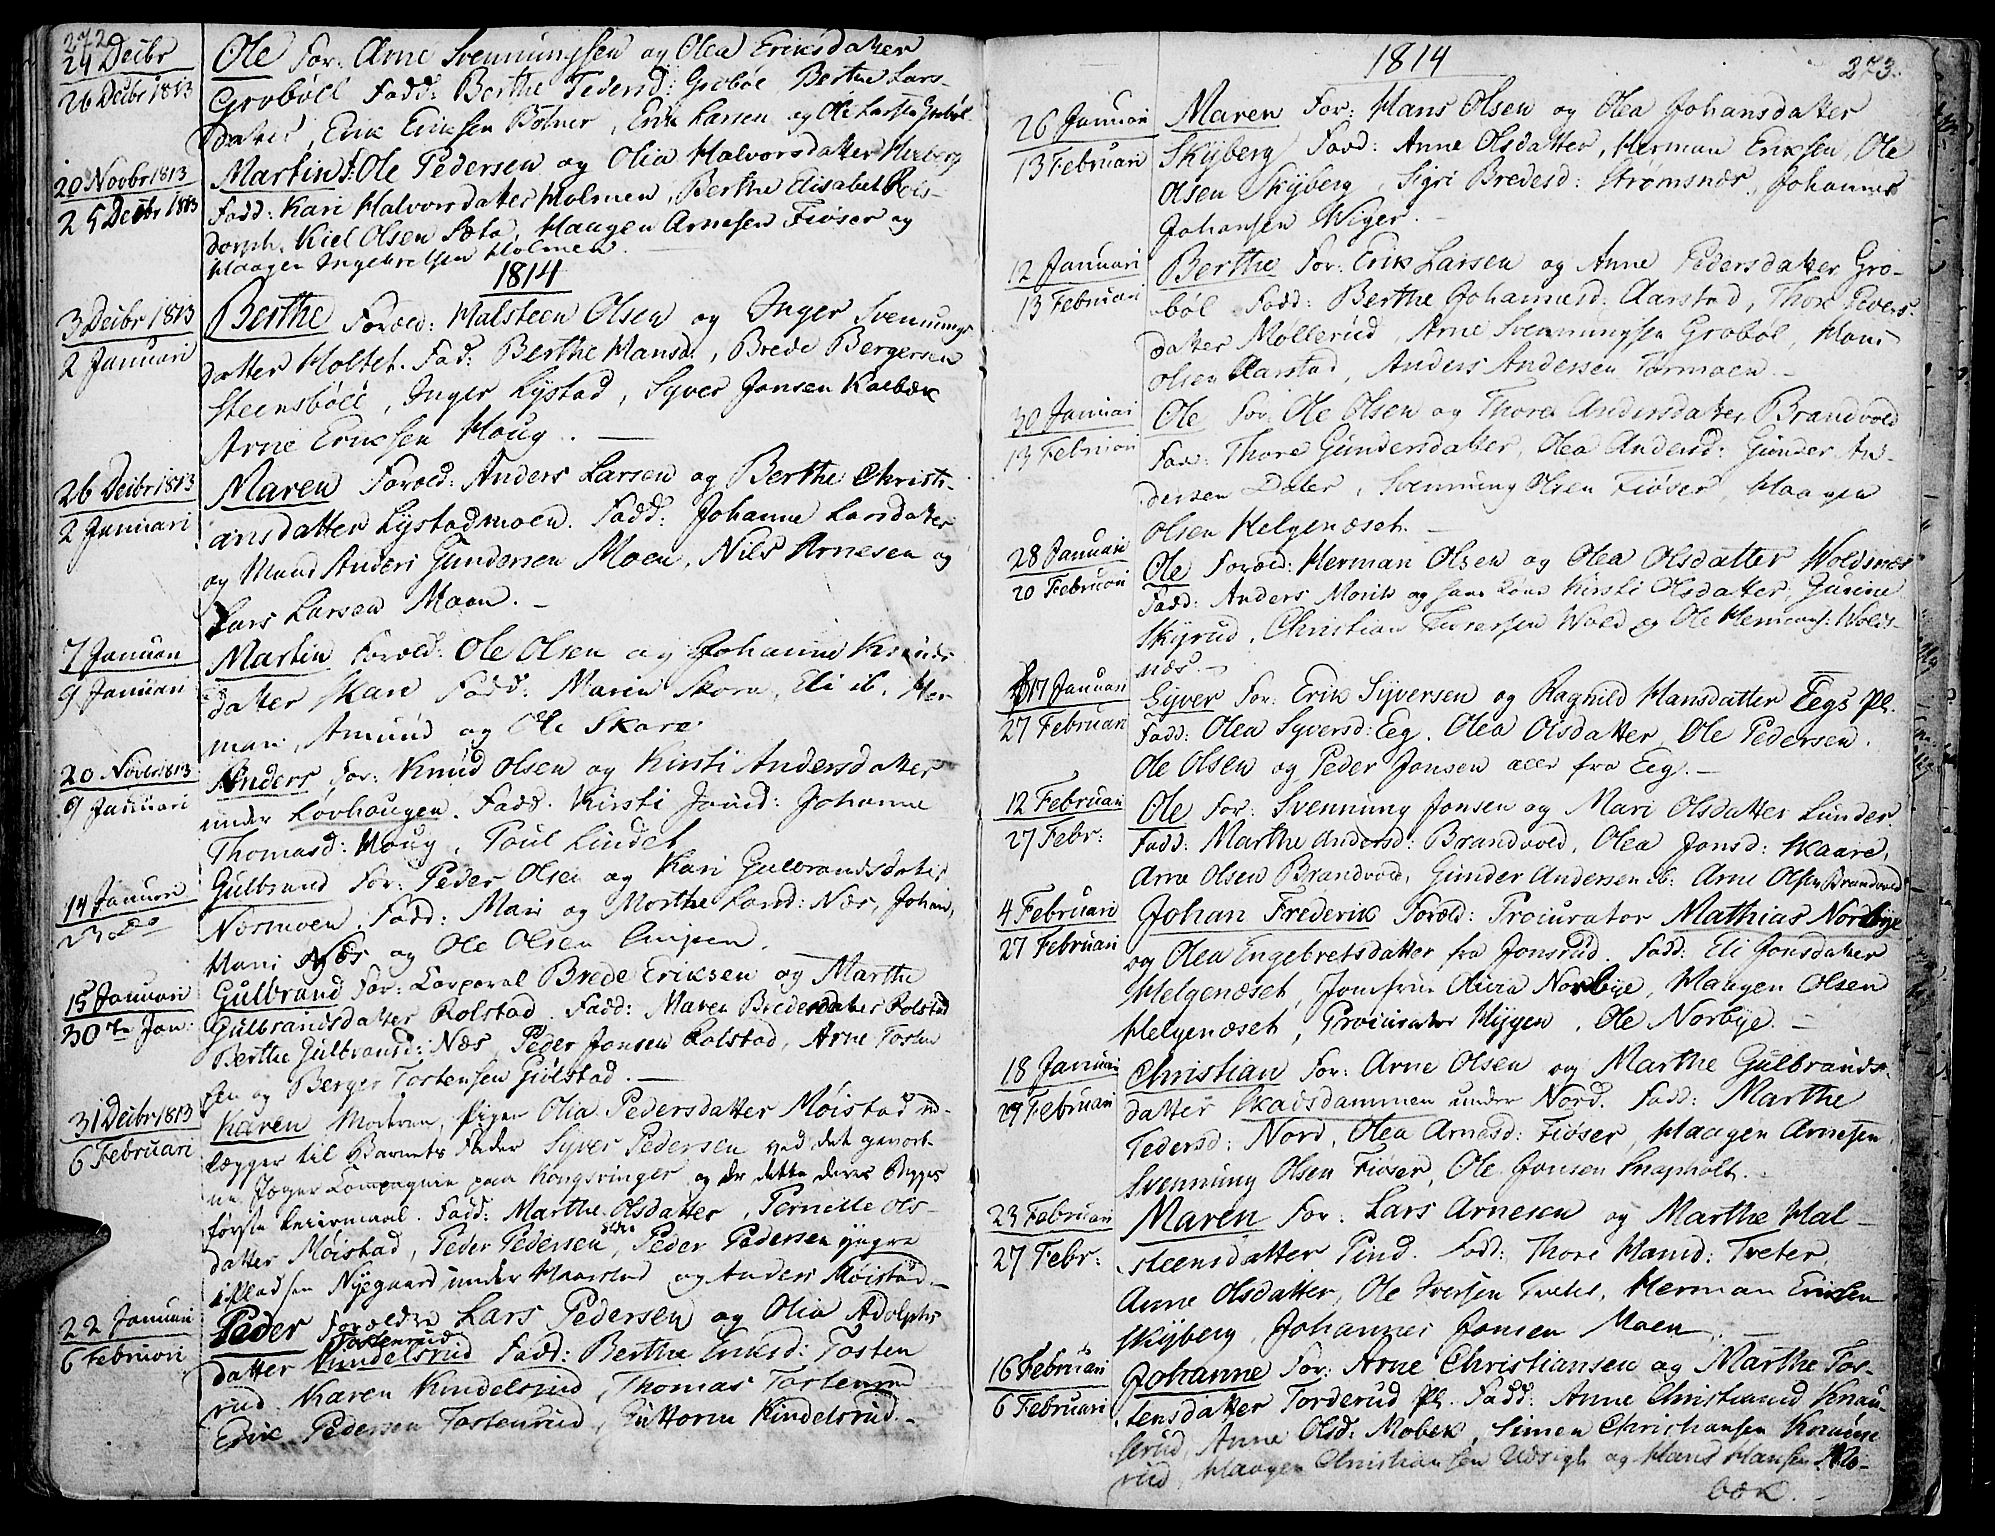 272
24 Decbr
26 Decbr 1813
Ole For: Arne Svennungsen og Olea Eriksdatter
Grobøll Fadd: Berthe Pedersd: Grobøl Berthe Lars-
datter, Erik Eriksen Botner, Erik Larsen og Ole Larsen Grobøl
20 Novbr 1813
25 Decbr 1813
Martin F: Ole Pedersen og Olia Halvorsdatter Herberg
Fadd: Kari Halvorsdatter Holmen, Berthe Elisabet Rois-
dorph, Kiel Olsen Sæta, Haagen Arnesen Fiøser og
Haagen Ingebretsen Holmen.
1814
3 Decbr 1813
2 Januari
Berthe Foræld: Halsteen Olsen og Inger Svennungs
datter Holtet. Fad: Berthe Hansd:, Brede Bergersen
Steensbøll, Inger Lystad, Syver Jonsen Kalbæk
Arne Eriksen Haug.
26 Decbr 1813
2 Januari
Maren Foræld: Anders Larsen og Berthe Christi-
ansdatter Lystadmoen. Fadd: Johanne Larsdatter
og Mand Anders Gundersen Moen, Nils Arnesen og
Lars Larsen Moen.
7 Januari
9 Januari
Martin Foræld: Ole Olsen og Johanne Knuds
datter Skare Fadd: Maren Skare, Eli ib. Her
man, Amund og Ole Skare
20 Novbr 1813
9 Januari
Anders, For: Knud Olsen og Kirsti Andersdatter
under Lovhaugen. Fadd. Kirsti Jonsd: Johanne
Thomasd: Haug, Poul Lindet
14 Januari
3 do
Gulbrand For: Peder Olsen og Kari Gulbrandsdatter
Nærmoen Fadd: Mari og Marthe Næs, Johan,
Hans Næs og Ole Olsen
15 Januari
30te Jan:
Gulbrand For: Corporal Brede Eriksen og Marthe
Gulbrandsdatter Rolstad. Fadd: Maren Bredesdatter Rolstad
Berthe Gulbrandsd: Næs, Peder Jonsen Rolstad, Arne Tosten
sen og Berger Tostensen Giølstad.
31 Decbr 1813
6 Februari
Karen Moderen, Pigen Olia Pedersdatter Møistad ud-
lægger til Barnets Fader Syver Pedersen ved det
ne Jæger Compagnie paa Kongsvinger og er dette deres Begges
første Leiermaal. Fadd: Marthe Olsdatter, Pernille Ols-
datter Møistad, Peder Pedersen Eldre, Peder Pedersen yngre
Nygaard under Haarstad og Anders Møistad.
22 Januari
6 Februari
Peder Forældre Lars Pedersen og Olia Adolphs
Tostenrud
datter Kindelsrud Fadd: Berthe Eriksd: Tosten
rud, Karen Kindelsrud, Thomas Tostenrud
Erik Pedersen Tostenrud, Guttorm Kindelsrud.
1814
273.
26 Januari
13 Februari
Maren For: Hans Olsen og Olea Johansdatter
Skyberg Fadd: Anne Olsdatter, Herman Eriksen, Ole
Olsen Skyberg, Sigri Bredesd: Strømsnæs, Johannes
Johansen Wiger.
12 Januari
13 Februari
Berthe For: Erik Larsen og Anne Pedersdatter Gro-
bøl Fadd: Berthe Johannesd: Aarstad, Thore Peders-
datter Møllerud, Arne Svennungsen Grobøl, Hans
Olsen Aarstad, Anders Andersen Tormoen.
30 Januari
13 Februari
Ole For: Ole Olsen og Thore Andersdatter Brandvold
Fad: Thore Gundersdatter, Olea Andersd: Gunder An-
dersen Dater, Svennung Olsen Fiøser, Haagen
Olsen Helgenæset.
28 Januari
20 Februari
Ole Foræld: Herman Olsen og Olea Olsdatter Woldsnæs
Fadd: Anders Mork og hans Kone Kirsti Olsdatter, Gurine
Skyrud, Christian Pedersen Wold og Ole Hermans: Wolds-
næs.
17 Januari
27 Februari
Syver For: Erik Syversen og Ragnild Hansdatter Eegs Pl.
Fadd: Olea Syversd: Eeg. Olea Olsdatter, Ole Pedersen,
Ole Olsen og Peder Jonsen alle fra Eeg.
12 Februari
27 Febr:
Ole For: Svennung Jonsen og Mari Olsdatter Lunder
Fadd: Marthe Andersd: Brandvold, Olea Jonsd: Skaare,
Arne Olsen Brandvold, Gunder Andersen ib: Arne Olsen Brandvold
4 Februari
27 Februari
Johan Frederik Foræld: Procurator Mathias Norbye
og Olea Engebretsdatter fra Jonsrud. Fadd: Eli Jonsdatter
Helgenæset, Jomfrue Olivia Norbye, Haagen Olsen
Helgenæset, Procurator Hiygen, Ole Norbye.
18 Januari
27 Februari
Christian For: Arne Olsen og Marthe Gulbrands-
datter Skadsdammen under Nord. Fadd: Marthe
Pedersd: Nord, Olea Arnesd: Fiøser, Haagen Arnesen
Svennung Olsen Fiøser, Ole Jonsen Snapholt.
23 Februari
27 Febr:
Maren For: Lars Arnesen og Marthe Hal-
steensdatter Pind. Fadd: Thore Hansd: Tveter,
Anne Olsdatter, Ole Iversen Tveter, Herman Eriksen
Skyberg, Johannes Jonsen Moen
16 Februari
6 Februari
Johanne For: Arne Christiansen og Marthe Tor-
stensdatter Torderud Pl. Fadd: Anne Christiansd Knau-
serud, Anne Olsd: Mobek, Simen Christiansen Knause
rud, Haagen Christiansen Udsigt og Hans Hansen Mo-
bæk.